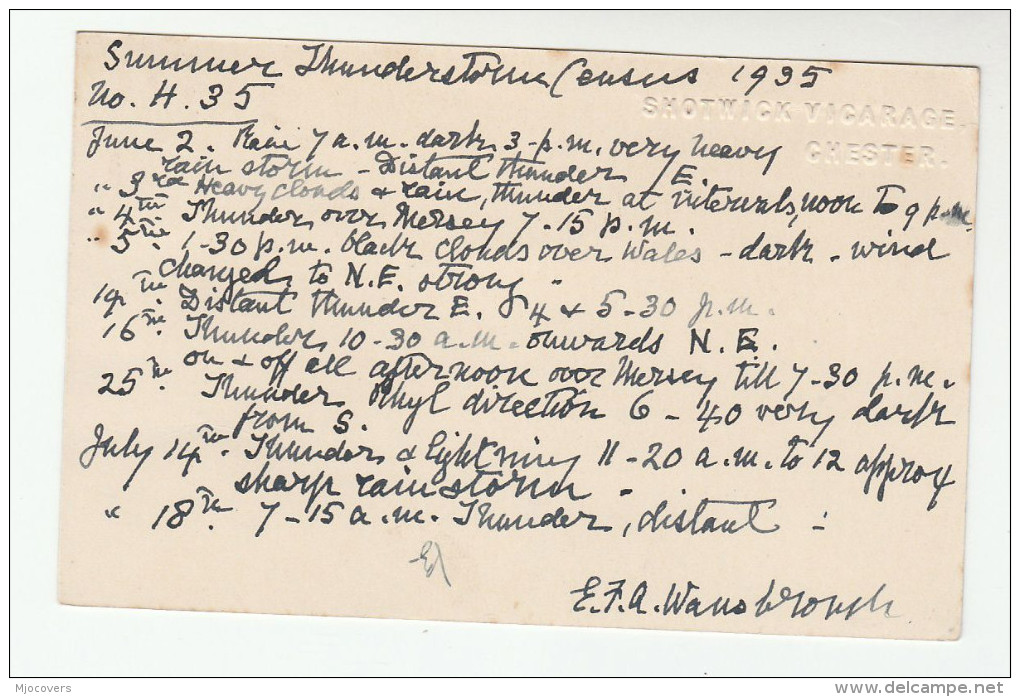 Summer Thunderstorm Census 1935
No. H. 35
SHOTWICK VICARAGE
CHESTER.
June 2. Rain 7 a.m. dark 3-p.m. very heavy
rain storm - Distant thunder E.
" 3rd Heavy clouds & rain, thunder at intervals, noon to 9 p.m.
" 4th Thunder over Mersey 7.15 p.m.
" 5th. 1-30 p.m. black clouds over Wales - dark - wind
changed to N.E. strong -
14th Distant thunder E. 4 & 5-30 p.m.
16th. Thunder 10-30 a.m. onwards N.E.
on & off all afternoon over Mersey till 7-30 p.m.
25th. Thunder Rhyl direction 6-40 very dark
from S.
July 14th. Thunder & lightning 11-20 a.m. to 12 approx
sharp rain storm -
" 18th. 7-15 a.m. Thunder, distant -
E.F.A. Wansbrough
Mjocovers
www.delcampe.net